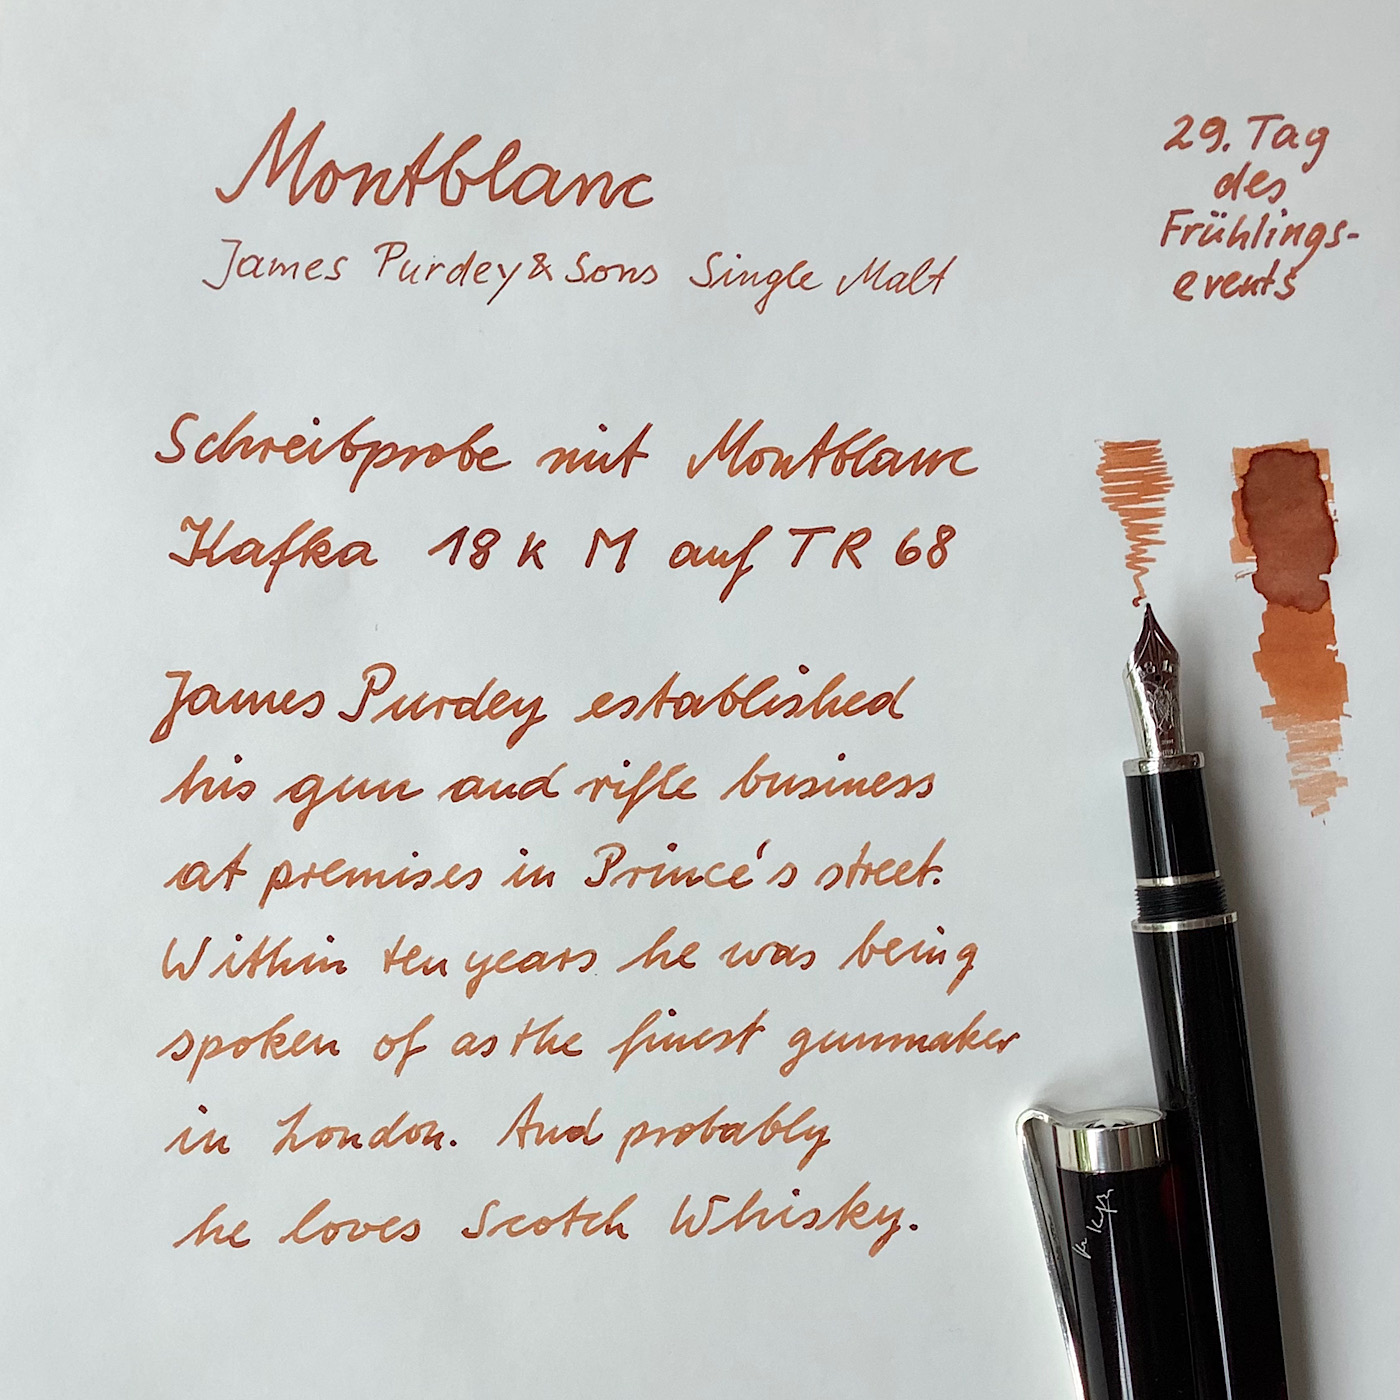 Montblanc
James Purdey & Sons Single Malt
29. Tag
des
Frühlings-
events
Schreibprobe mit Montblanc
Kafka 18 k M auf TR 68
James Purdey established
his gun and rifle business
at premises in Prince's street.
Within ten years he was being
spoken of as the finest gunmaker
in London. And probably
he loves Scotch Whisky.